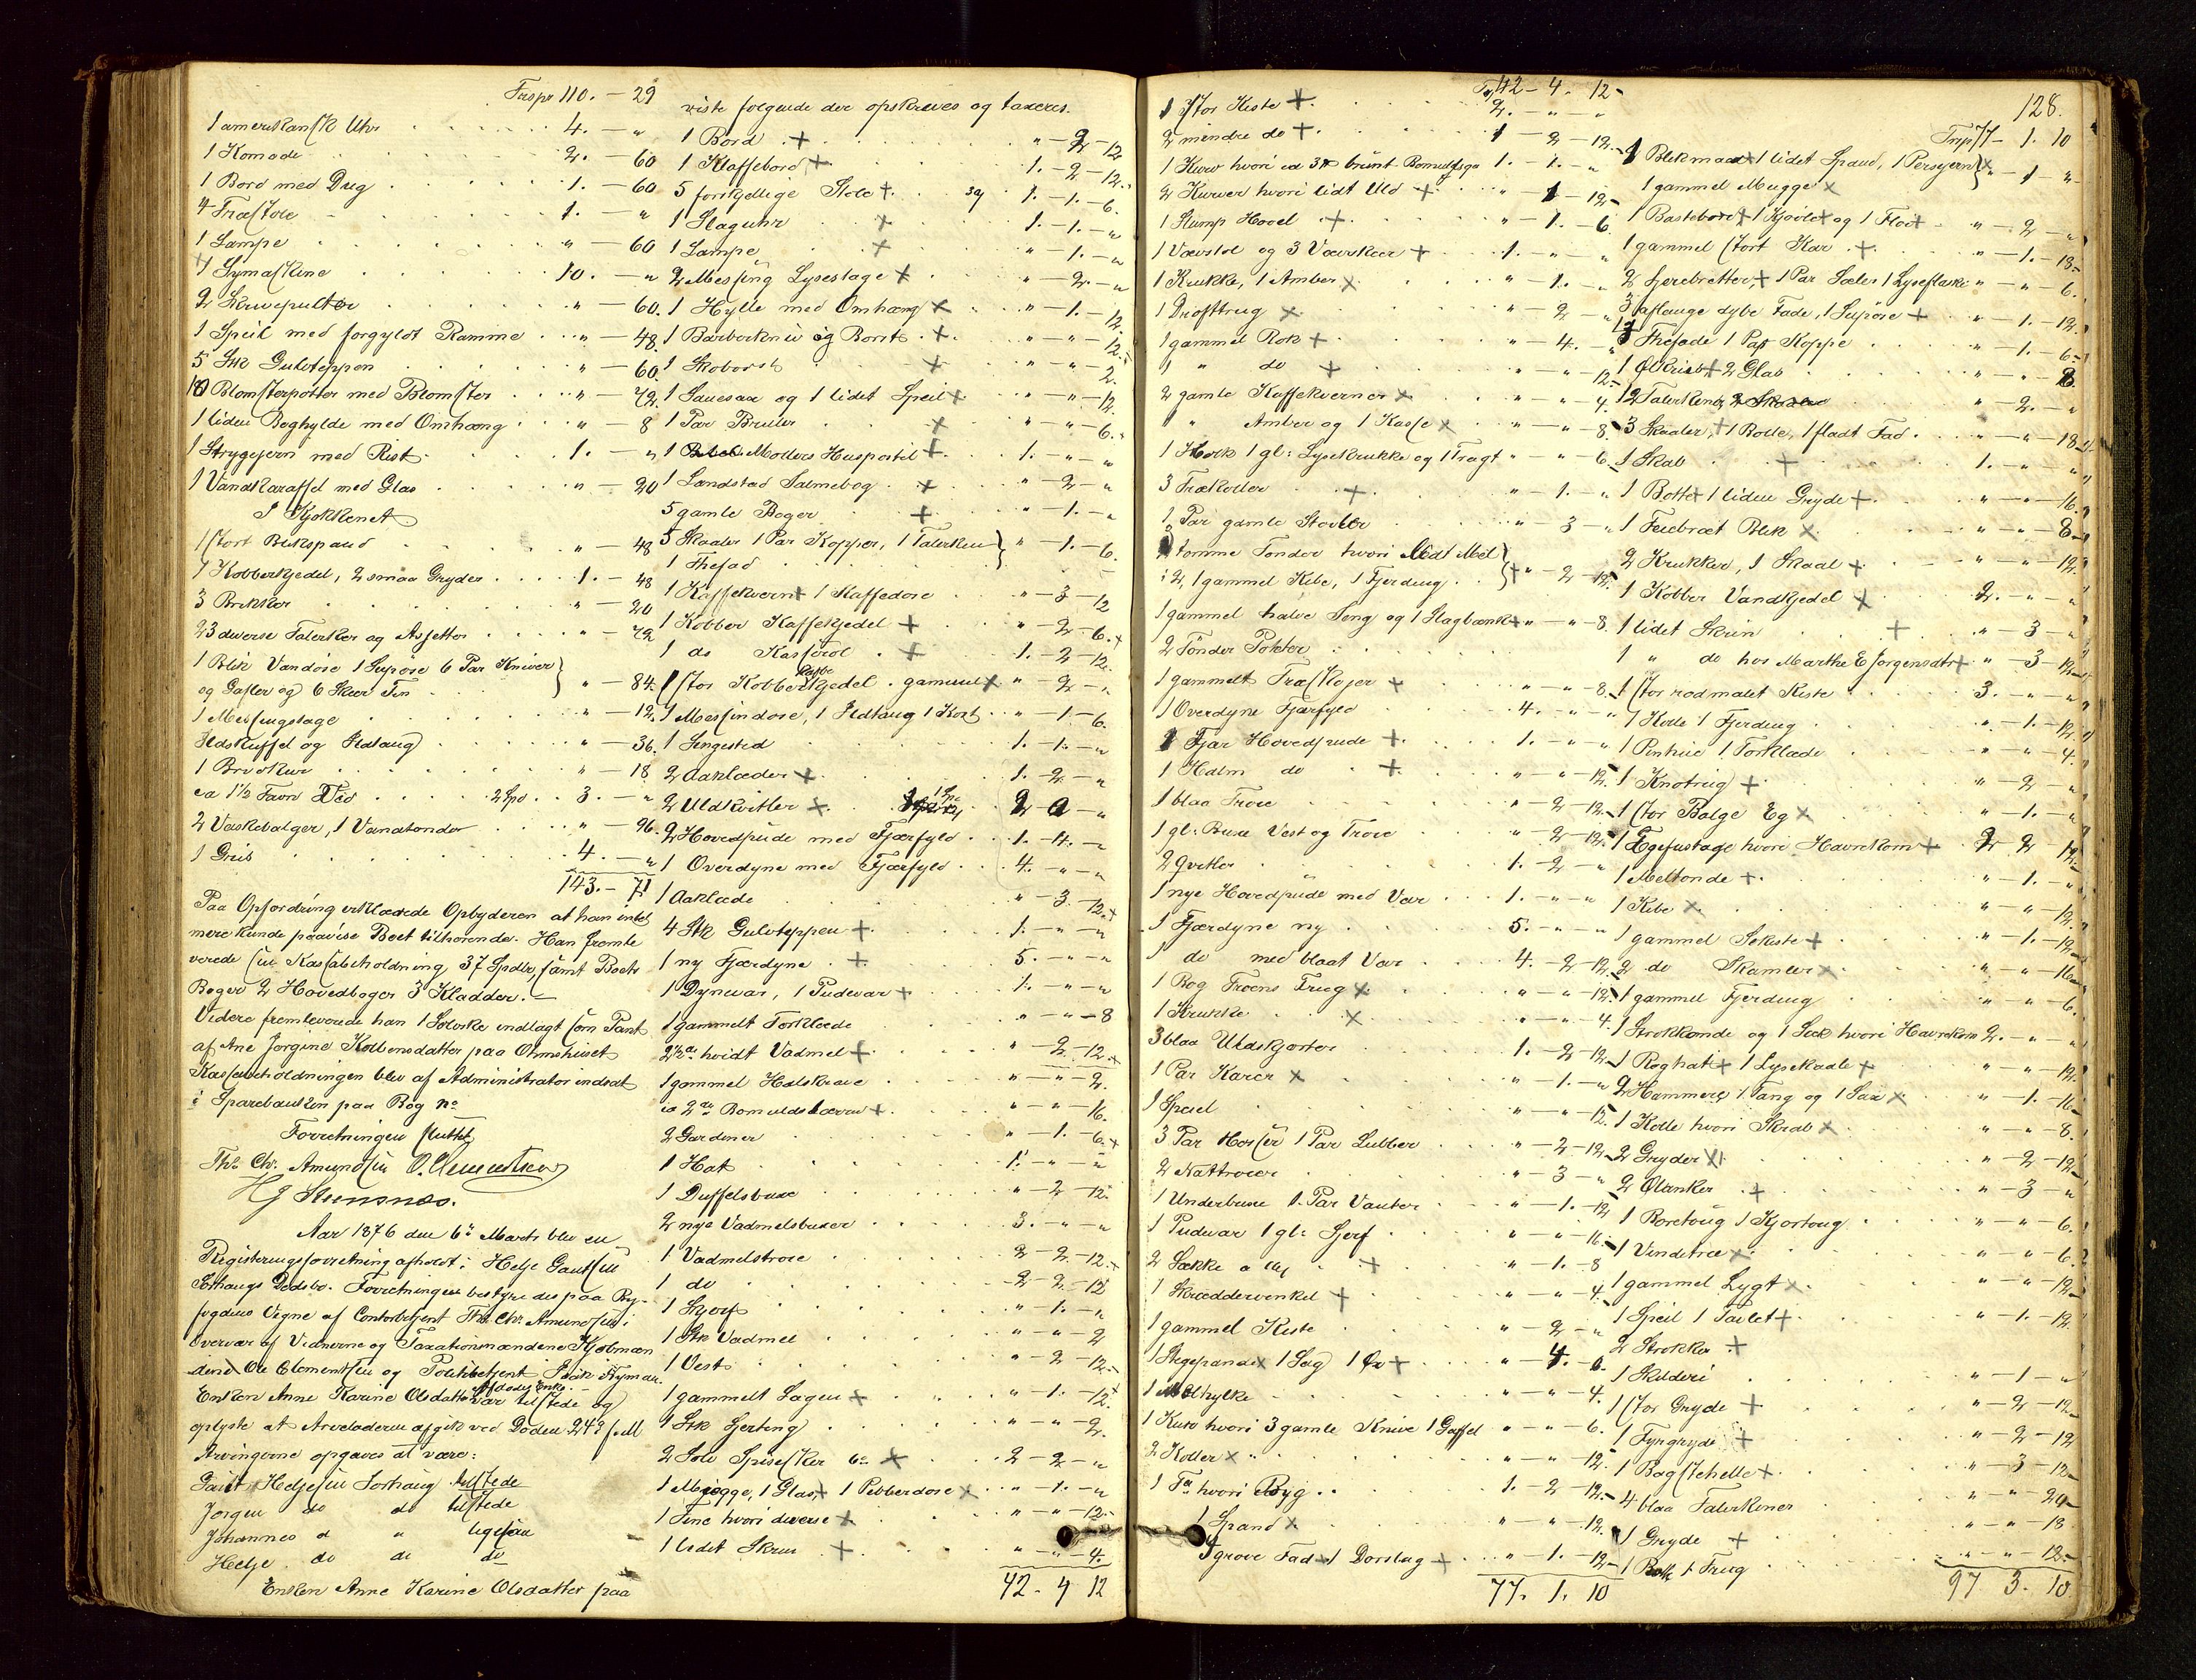 Trspr 110. - 29
1 amerikansk Uhr 4. - "
1 Komode 2. - 60
1 Bord med Dug 1. - 60
4 Træstole 1. - "
1 Lampe " - 60
1 Symaskine 10. - "
2 Skrivepulter " - 60.
1 Speil med forgyldt Ramme " - 48.
5 Stk Gulvteppen " - 60.
10 Blomsterpotter med Blomster " - 72.
1 liden Boghylde med Omhæng " - 8
1 Strygejern med Rist 1. - "
1 Vandkaraffel med Glas " - 20
I Kjøkkenet
1 stort Blikspand " - 48
1 Kobberkjedel, 2 smaa Gryder 1. - 48
3 Brikker " - 20
23 diverse Talerker og Assjetter " - 72
1 Blik Vandøse 1 Supøse 6 Par Kniver
og Gafler og 6 Skeer Tin " - 84.
1 Messingstage " - 12.
Ildskuffel og Ildtang " - 36.
1 Brødkurv " - 18
ca 1 1/2 Favn Ved 2 Spd 3. - "
2 Vaskebalger, 1 Vandtønde " - 96.
1 Gris 4. - "
143. - 71
Paa Opfordring erklærede Opbyderen at han intet
mere kunde paavise Boet tilhørende. Han fremle
verede sin Kassabeholdning 37 Spdlr, samt Boets
Bøger 2 Hovedbøger 3 Kladder. -
Videre fremleverede han 1 Sølvske indlagt som Pant
af Ane Jørgine Kolbensdatter paa Ohmshuset
Kassabeholdningen blev af Administrator indsat
i Sparebanken paa Bog No
Forretningen sluttet
Ths. Chr. Amundsen O. Clementsen
H J Steensnæs.
Aar 1876 den 6te Marts blev en
Registreringsforretning afholdt i Helje Gautsen
Sørhaugs Dødsbo. Forretningen bestyredes paa By-
fogdens Vegne af Contorbetjent Ths. Chr. Amundsen i
Overvær af Vidnerne og Taxationsmændene Kjøbmæn
dene Ole Clementsen og Politibetjent Isak Nyman.
Enken Anne Karine Olsdatter Afdødes Enke var tilstede og
oplyste at Arveladeren afgik ved Døden 24de f. M
Arvingerne opgaves at være:
Gaut Heljesen Sørhaug tilstede
Jørgen do do tilstede
Johannes d " ligesaa
Helje do do do
Enken Anne Karine Olsdatter paa
viste følgende der opskreves og taxeres.
1 Bord + " - 2 - 12
1 Klaffebord + 1. - 2 - 12.
5 forskjellige Stole + 1. - 1. - 6.
1 Slaguhr + 1. - 1. - "
1 Lampe + " - 1. - "
2 Messing Lysestage + " - 2. - "
1 Hylle med Omhæng + " - 1. - 12.
1 Barberkniv og Borst + " - " - 12.
1 Skobørst + " - " - 2.
1 Sauesax og 1 lidet Speil + " - " - 12.
1 Par Briller + " - " - 6.
1 Møllers Huspostil + 1. - " - "
1 Landstad Salmebog + " - 2 - "
5 gamle Bøger + " - 1. - "
5 Skaaler 1 Par Kopper, 1 Talerken
1 Thefad " - 1. - 6.
1 Kaffekvern + 1 Kaffedose " - 3 - 12
1 Kobber Kaffekjedel + " - 2 - 6.
1 do Kasserol + 1. - 2 - 12.
1 stor Kobberkjedel gammel + " - 2 - "
1 Messindose, 1 Ildtang 1 Kost " - 1. - 6.
1 Sengested 1. - 1. - "
2 Aaklæder + 1. - 2. - "
2 Uldkvitler + 2 - 0 - "
2 Hovedpude med Fjærfyld 1. - 4. - "
1 Overdyne med Fjærfyld 4. - " - "
1 Aaklæde " - 3. - 12.
4 Stk Gulvteppen + 1. - " - "
1 ny Fjærdyne + 5. - " - "
1 Dynevar, 1 Pudevar + 1. - " - "
1 gammelt Forklæde " - " - 8
2 1/2 al hvidt Vadmel + " - 2 - 12.
1 gammel Halskrave " - " - 2.
ca 2 al Bomuldslærred + " - " - 16.
2 Gardiner " - 1. - 6.
1 Hat 1. - " - "
1 Duffelsbuxe " - 2 - 12.
2 nye Vadmelsbuxer 3. - " - "
1 Vadmelstrøie 2 - 2. - 12.
1 do 2 - 2. - 12
1 Skjorf " - 1. - "
1 Stk Vadmel " - " - 2
1 Vest " - 2 - 12.
1 gammelt Lagen + " - 1. - 12.
1 Stk Sjerting " - " - 2.
2 Sølv Spiseskeer + 2 - 2 - "
1 Mugge, 1 Glas, + 1 Pebberdose + " - 1. - "
1 Tine hvori diverse + " - " - 12.
1 lidet Skrin + " - " - 4.
42. - 4 12
Trsp 42 - 4 - 12
1 stor Kiste + 2. - " - "
2 mindre do + 1 - 2 - 12.
1 Kurv hvori ca 3 # brunt Bomuldsgarn 1. - 1. - "
2 Kurver hvori lidt Uld + " - 1 - 12
1 Stump Hovel + " - 1. - 6
1 Vævstol og 3 Vævskeer + 1. - " - "
1 Krukke, 1 Amber + " - 1. - "
1 Drøftetrug + " - 2 - "
1 gammel Rok + " - 4. - "
1 " do + " - " - 12.
2 gamle Kaffekverner + " - " - 4.
" Amber og 1 Kasse + " - " - 8.
1 Hørk 1 gl: Lysekrukke og 1 Tragt " - " - 6.
3 Trækoller + " - 1. - "
1 Par gamle Støvler " - 3 - "
tomme Tønder hvori lidt Mel
i 2, 1 gammel Kibe, 1 Fjerding + " - 2 - 12.
1 gammel halve Seng og 1 Slagbænk + " - " - 8.
2 Tønder Poteter
1 gammelt Træskojer + " - " - 8.
1 Overdyne Fjærfyld 4. - " - "
1 Fjær Hovedpude + 1. - " - "
1 Halm do + " - " - 12.
1 blaa Trøie " - 2 - 12.
1 gl: Buxe Vest og Trøie " - 2 - 12.
2 Qvitler 1. - 2 - "
1 nye Hovedpude med Var 1. - " - "
1 Fjærdyne ny 5. - " - "
1 do med blaat Var 4. - 2 - 12.
1 Bog Troens Frug + " - " - 12.
1 Krukke + " - " - 4.
3 blaa Uldskjorter 1. - 2 - 12
1 Par Karer + " - 1. - "
1 Speil " - " - 12.
3 Par Hoser 1 Par Lubber " - 2 - 12
2 Nattrøier " - 3 - "
1 Underbuxe 1 Par Vanter " - 1. - 12
1 Pudevar 1 gl: Sjerf " - " - 16.
2 Sække + " - 1. - 8
1 Skræddervinkel + " - " - 4.
1 gammel Kiste " - 2 - "
1 Stegepande + 1 Sag 1 Øx + " - 4. - 6.
1 Melhylke " - " - 4.
1 Kurv hvori 3 gamle Knive 1 Gaffel " - " - 6.
2 Koller + " - " - 12.
1 Td hvori Byg 1. - 2 - 12.
1 Spand + " - " - 12.
grove Fad + 1 Dørslag + " - 1. - 12
77. 1. 10
128.
Trsp 77 - 1. 10
1 Blikmaal + 1 lidet Spand, 1 Persejern + " - 1 - "
1 gammel Mugge +
1 Bastebord + 1 Kjøvle + og 1 Flo + " - 2 - "
1 gammel stort Kar + " - 1. - 18.
2 Fjerebretter, + 1 Par Sæler 1 Lyseflaske " - " - 6.
3 aflange dybe Fade, 1 Supøse + " - 1. - 12.
Thefade 1 Par Koppe " - 1. - 6.
1 Ølkrus + 2 Glas " - " - 8.
12 Talerkener " - 2. - "
3 Skaaler, + 1 Bolle, 1 fladt Fad " - " - 18.
1 Skab + 1. - " - "
1 Bøtte + 1 liden Gryde + " - " - 16.
1 Feiebræt Blik + " - " - 8
2 Krukker, 1 Skaal + " - " - 12.
1 Kobber Vandkjedel + 2. - " - "
1 lidet Skrin + " - 3 - "
1 " do hos Marthe E Jørgensdatr + " - 3 - 12
1 stor rødmalet Kiste 3. - " - "
1 Kolle 1 Fjerding " - 1. - 12.
1 Penhue 1 Forklæde " - " - 4.
1 Knotrug + " - 2 - "
1 stor Balge Eg + " - 1. - "
1 Egefustage hvori Havrekorn + 2 2 12.
1 Meltønde + " - 1. - "
1 Kibe + " - " - 12.
1 gammel Sekiste + " - 1. - 12
2 do Skamler + " - " - 16
1 gammel Fjerding " - " - 6.
1 Strokkonde og 1 Sæk hvori Havrekorn 2. - " - "
1 Røghat + 1 Lysekaale + " - " - 12.
2 Hammere, 1 Tang og 1 Sax + " - 1. - 16
1 Kolle hvori Skrab + " - " - 8.
2 Gryder + " - 2 - 12
2 Ølanker + " - 3 - "
1 Boretøug 1 Kjørtoug " - " - 6.
1 Vindetræ + " - " - 6.
1 gammel Lygt + " - " - 12
1 Speil 1 Tavlet + " - 1. - 12.
2 Strokker +
1 Skilderi " - 1 - "
1 stor Gryde + " - 2 - 12
1 Fyrgryde + " - 2 - 12
1 Bagstehelle + " - 3 - 12
4 blaa Talerkener " - " - 20
1 Gryde + " - " - 18
1 Bøtte 1 Trug " - " - 12
97 3. 10